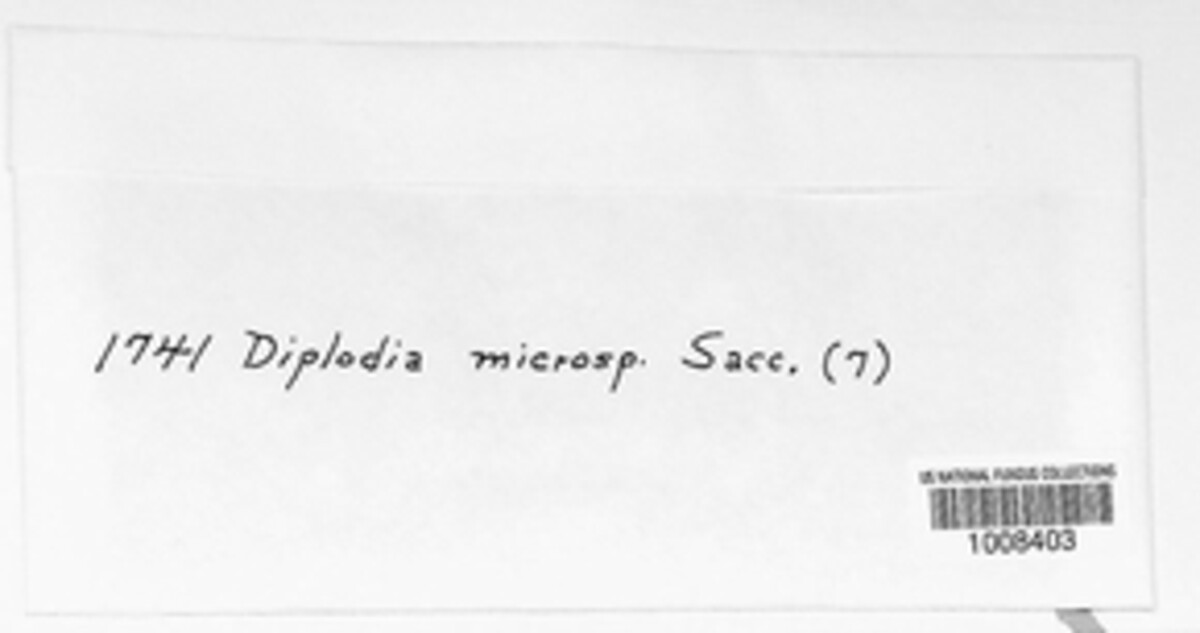 1741 Diplodia microsp. Sacc. (7)
US NATIONAL FUNGUS COLLECTIONS
1008403